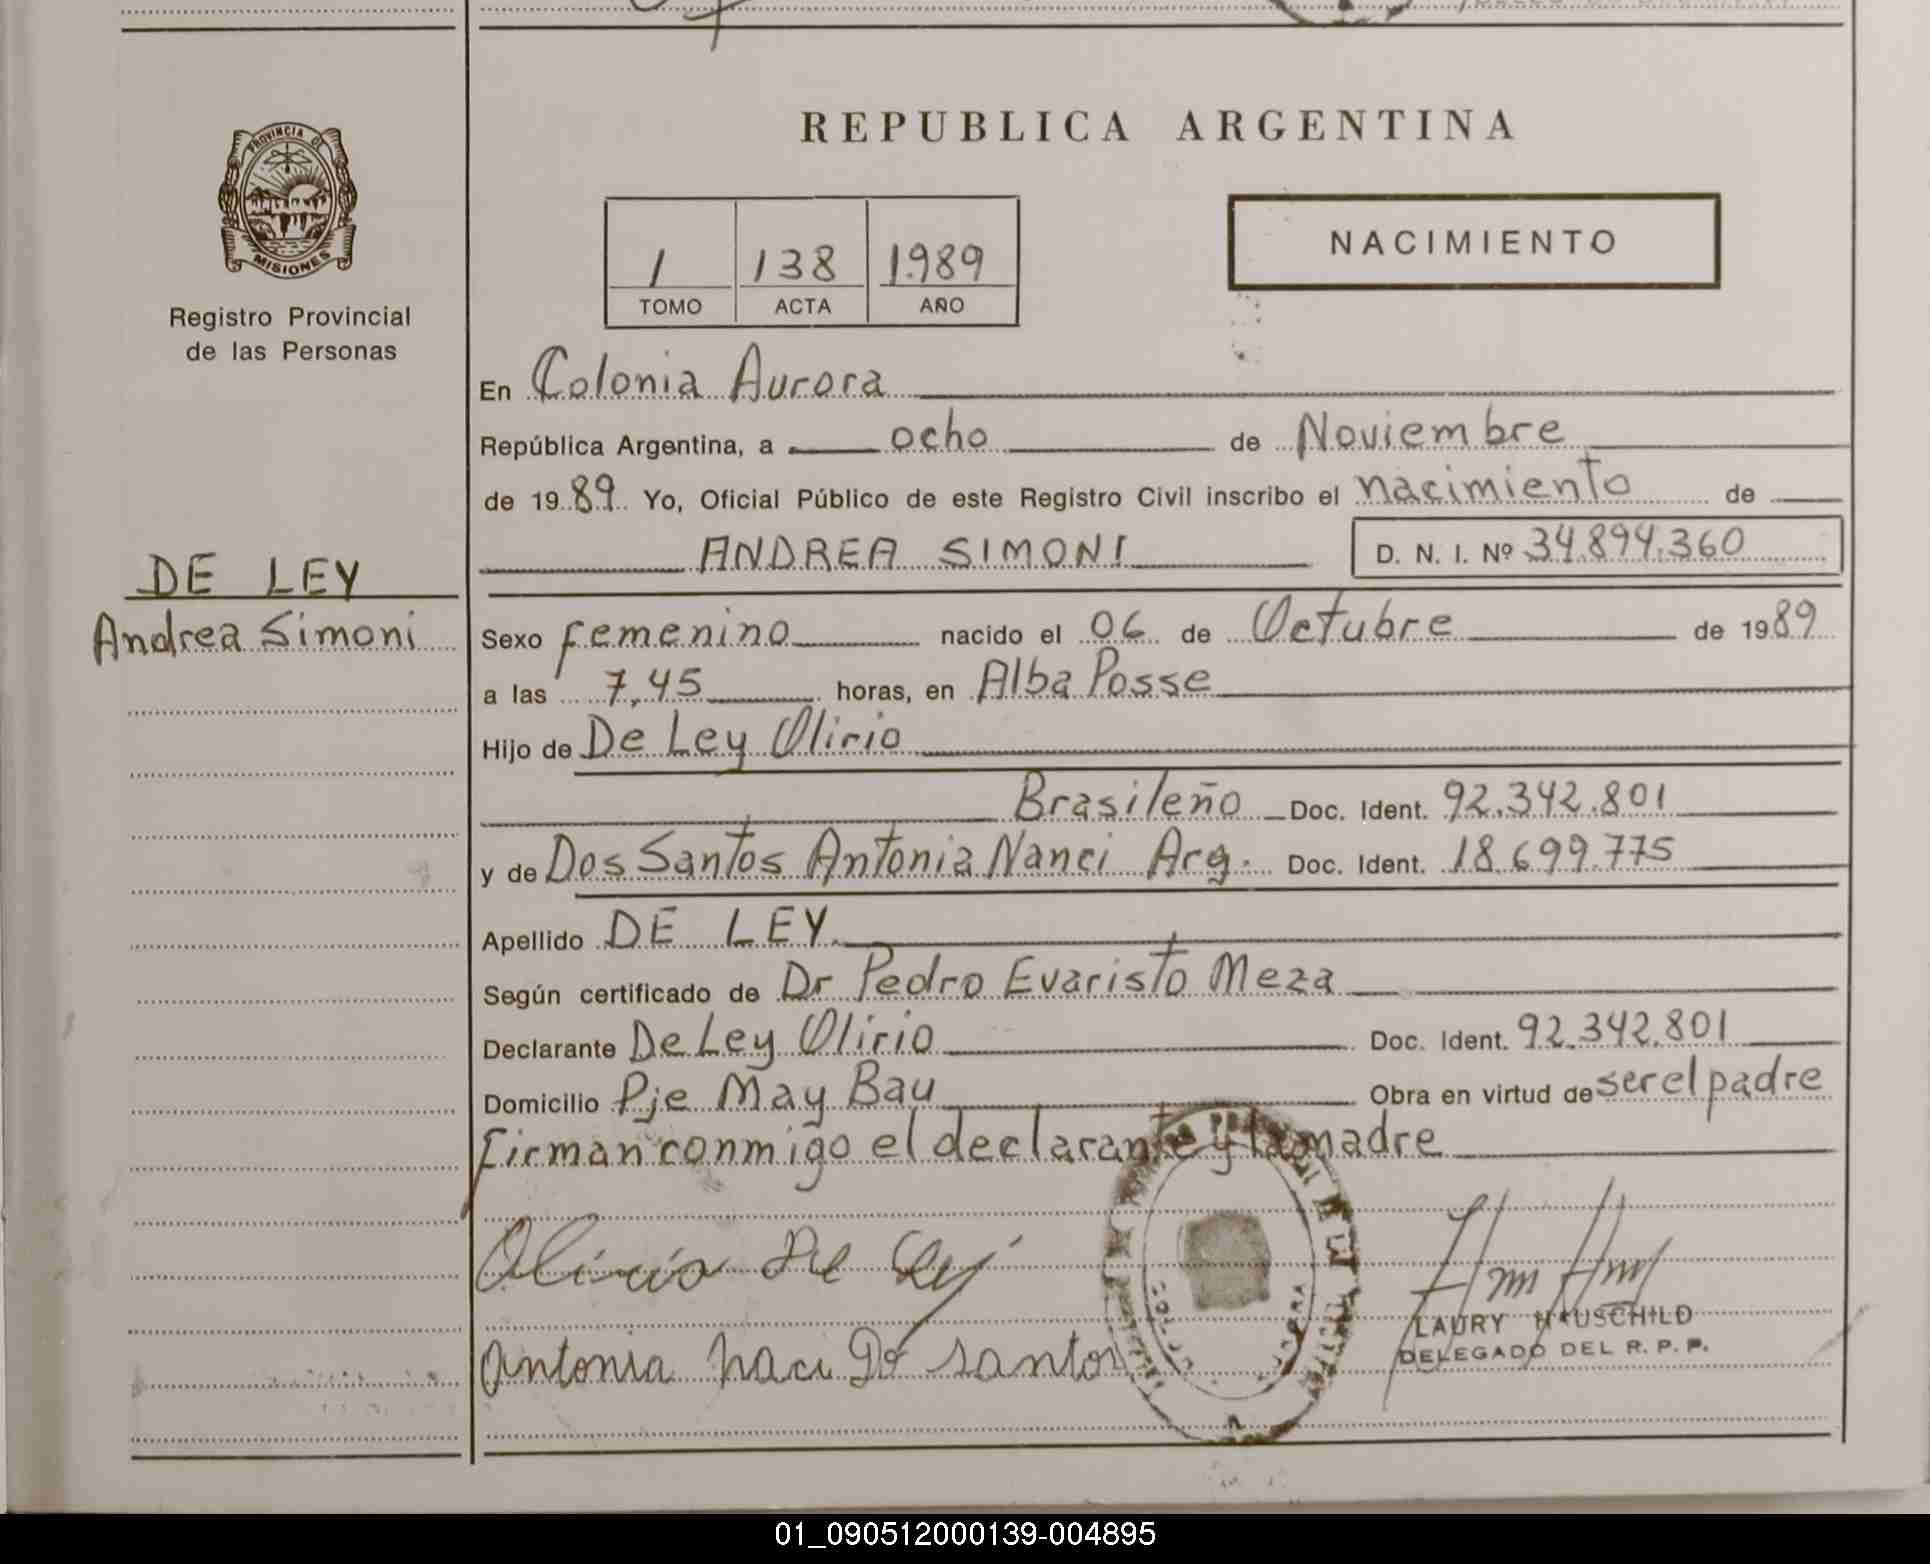 PROVINCIA DE
MISIONES
Registro Provincial
de las Personas
DE LEY
Andrea Simoni
REPUBLICA ARGENTINA
1 138 1989
TOMO ACTA AÑO
NACIMIENTO
En Colonia Aurora
República Argentina, a ocho de Noviembre
de 1989 Yo, Oficial Público de este Registro Civil inscribo el nacimiento de
ANDREA SIMONI D. N. I. Nº 34.894.360
Sexo femenino nacido el 06 de Octubre de 1989
a las 7,45 horas, en Alba Posse
Hijo de De Ley Olirio
Brasileño Doc. Ident. 92.342.801
y de Dos Santos Antonia Nanci Arg. Doc. Ident. 18.699.775
Apellido DE LEY
Según certificado de Dr Pedro Evaristo Meza
Declarante De Ley Olirio Doc. Ident. 92.342.801
Domicilio Pje May Bau Obra en virtud de ser el padre
Firman conmigo el declarante y la madre
Olirio De Ley
Antonia naci Do santos
LAURY HAUSCHILD
DELEGADO DEL R. P. P.
01_090512000139-004895